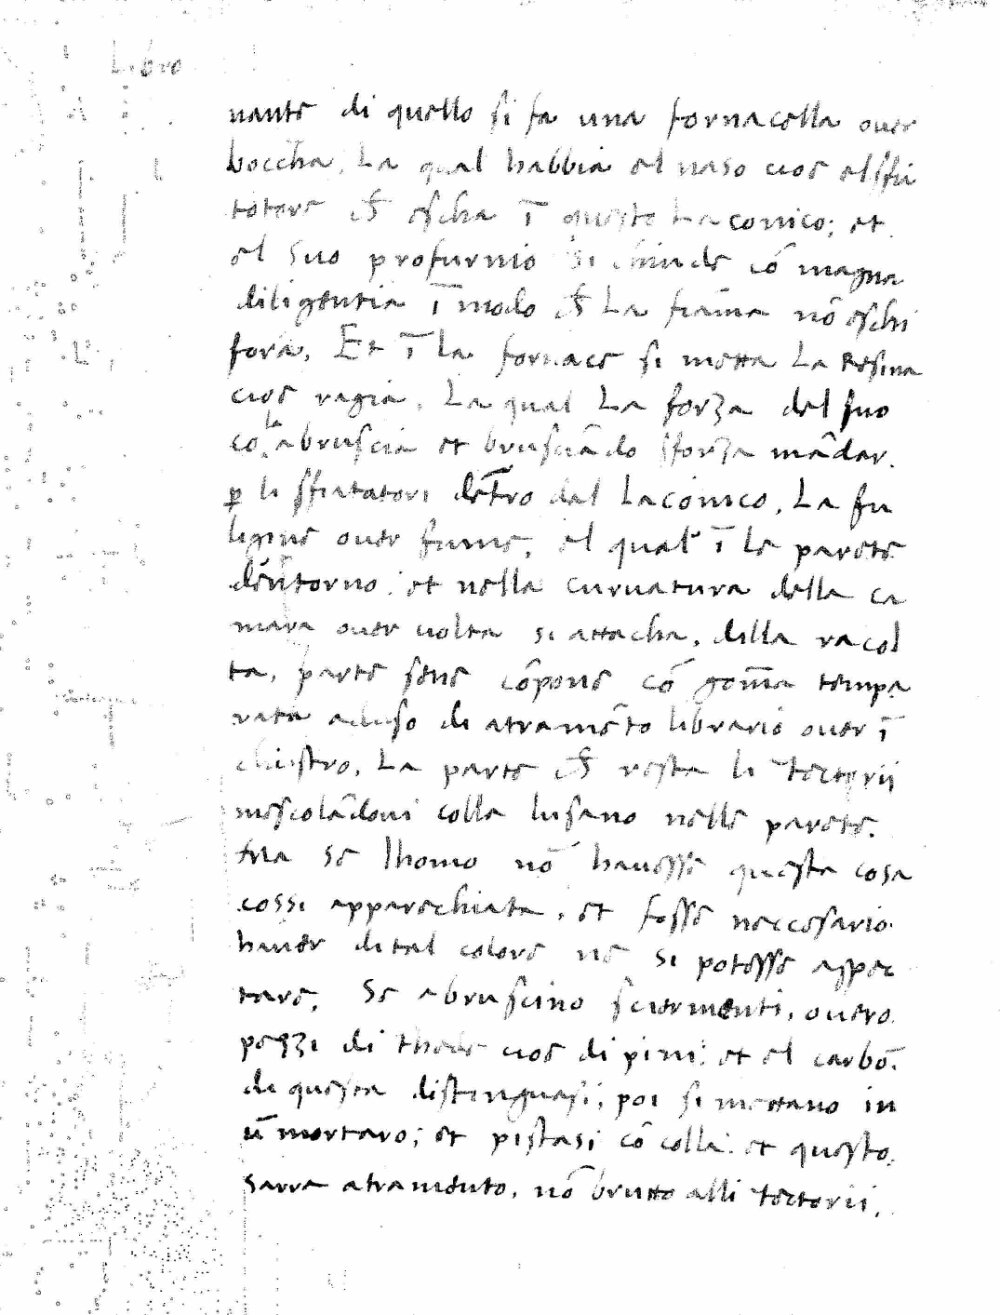 Libro
nante di quello si fa una fornacella ouer
boccha, La qual habbia el naso cioe el sfia
totore ch̄ escha ī questo Laconico; et
el suo profurnio si chiude cō magna
diligentia ī modo ch̄ La fiāma nō eschi
fora, Et ī la fornace si metta La Resina
cioe ragia, La qual La forza del fuo
co la abruscia et brusciādo sforza mādar
ꝑ li sfiatatori dētro dal Laconico, La fu
ligine ouer fume, el qual ī le parete
dēntorno: et nella curuatura della ca
mara ouer uolta si attacha, dilla racol
ta, parte sene cōpone cō gōma tempe
rata aduso di atramēto librario ouer ī
chiostro, La parte ch̄ resta li Tectorii
mescolādoui colla lusano nelle parete.
Ma se lhomo nō hauesse questa cosa
cossi apparechiata, et fosse neccesario
hauer di tal colore ne si potesse aspec
tare, Se abruscino sciermenti, ouero
pezzi di thede cioe di pini: et el carbō
di questa distinguasi; poi si mettano in
ū mortaro; et pistasi cō colla: et questo
sarra atramento, nō brutto alli Tectorii.